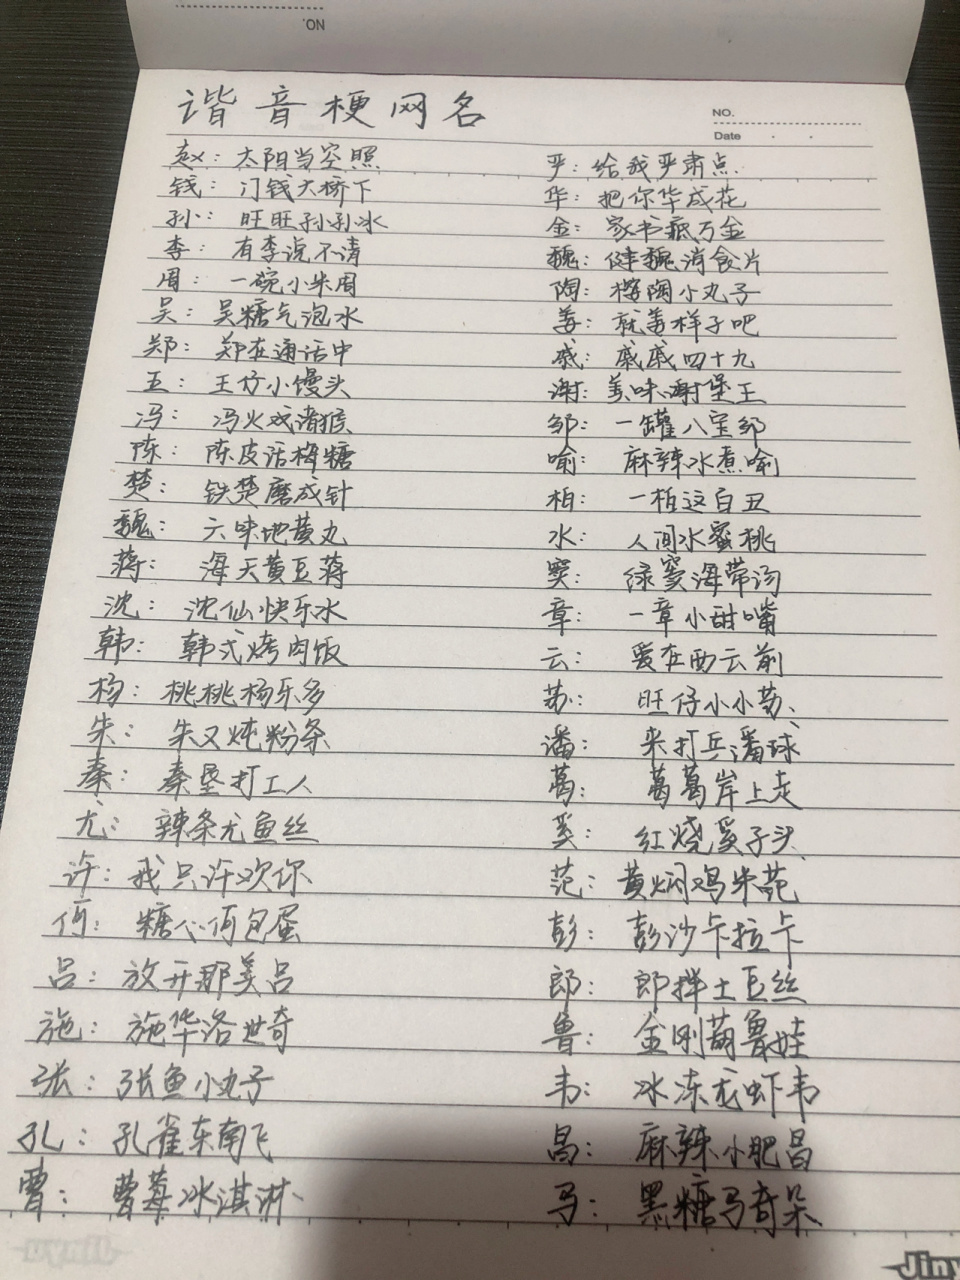 NO.
谐音梗网名
NO.
Date
赵：太阳当空照
钱：门钱大桥下
孙：旺旺孙孙冰
李：有李说不清
周：一碗小米周
吴：吴糖气泡水
郑：郑在通话中
王：王仔小馒头
冯：冯火戏诸侯
陈：陈皮话梅糖
楚：铁楚磨成针
魏：六味地黄丸
蒋：海天黄豆蒋
沈：沈仙快乐水
韩：韩式烤肉饭
杨：桃桃杨乐多
朱：朱又炖粉条
秦：秦垦打工人
尤：辣条尤鱼丝
许：我只许欢你
何：糖心何包蛋
吕：放开那美吕
施：施华洛世奇
张：张鱼小丸子
孔：孔雀东南飞
曹：曹莓冰淇淋
严：给我严肃点
华：把你华成花
金：家书疯万金
魏：健魏消食片
陶：樱陶小丸子
姜：就姜样子吧
戚：戚戚四十九
谢：美味谢堡王
邹：一罐八宝邹
喻：麻辣水煮喻
柏：一柏这百丑
水：人间水蜜桃
窦：绿窦海带汤
章：一章小甜嘴
云：爱在西云前
苏：旺仔小小苏
潘：来打乒潘球
葛：葛葛岸上走
奚：红烧奚子头
范：黄焖鸡米范
彭：彭沙卡拉卡
郎：郎拌土豆丝
鲁：金刚葫鲁娃
韦：冰冻龙虾韦
昌：麻辣小肥昌
马：黑糖马奇朵
Jiny